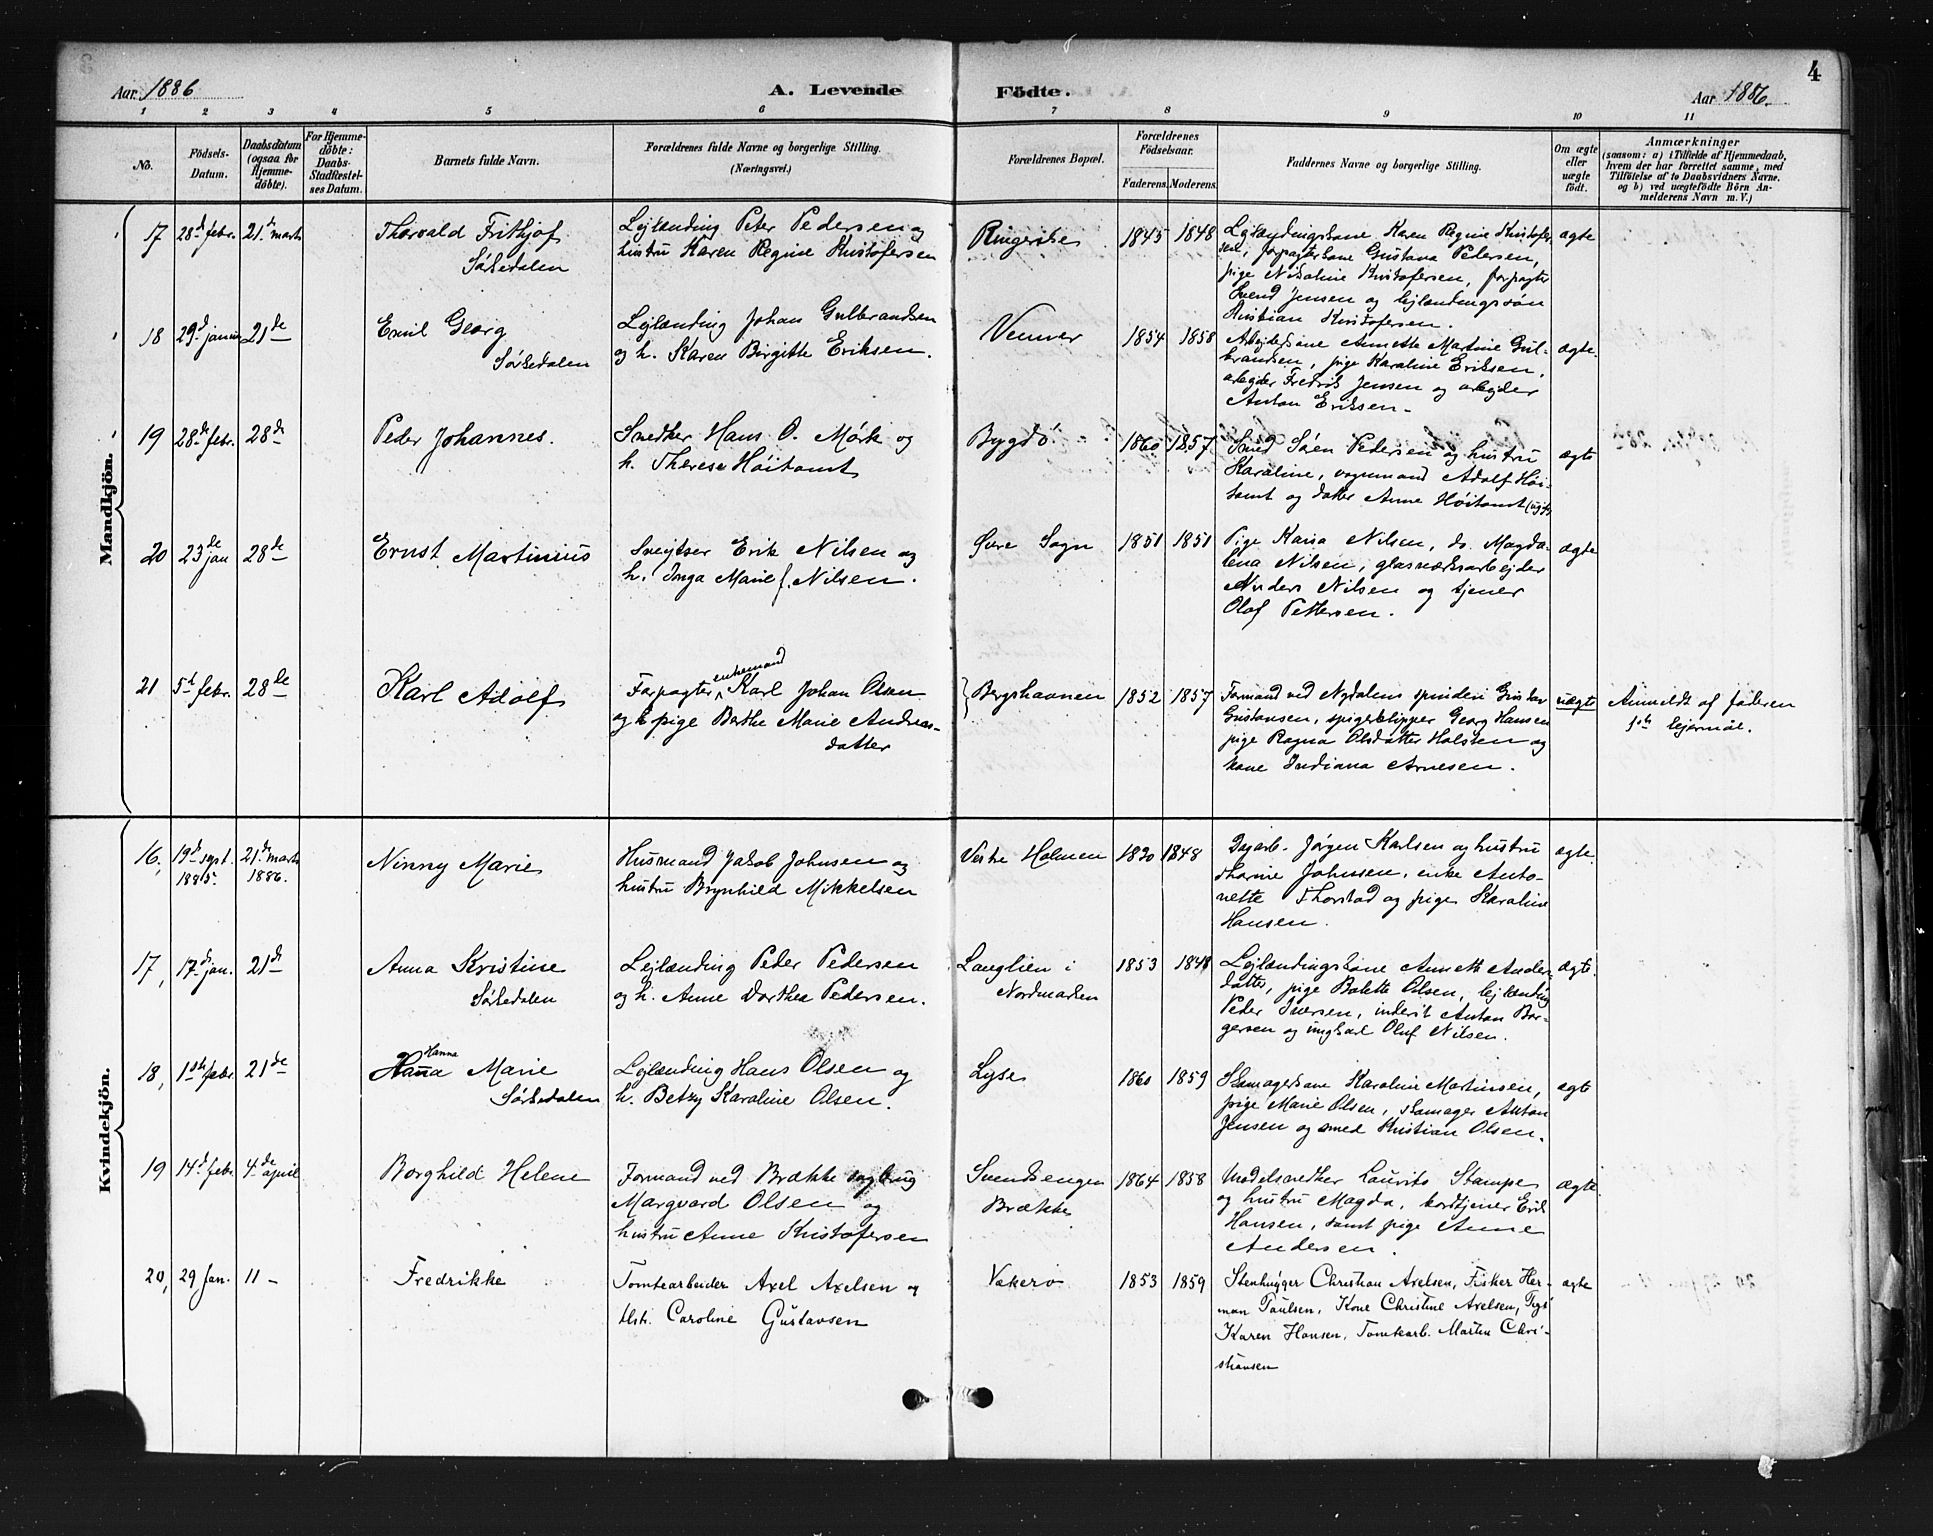 4
Aar 1886
A. Levende Födte.
Aar 1886.
1 2 3 4 5 6 7 8 9 10 11
No.
Födsels-
Datum.
Daabsdatum
(ogsaa for
Hjemme-
döbte).
For Hjemme-
döbte:
Daabs-
Stadfæstel-
ses Datum.
Barnets fulde Navn.
Forældrenes fulde Navne og borgerlige Stilling.
(Næringsvei.)
Forældrenes Bopæl.
Forældrenes
Födselsaar.
Faderens. Moderens.
Faddernes Navne og borgerlige Stilling.
Om ægte
eller
uægte
födt.
Anmærkninger
(saasom: a) i Tilfælde af Hjemmedaab,
hvem der har forrettet samme, med
Tilföielse af to Daabsvidners Navne,
og b) ved uægtefödte Börn An-
melderens Navn m. V.)
Mandkjön.
17 28d febr. 21de marts
Thorvald Frithjof
Sørkedalen
Lejlænding Peter Pedersen og
hustru Karen Regine Kristofersen
Ringerike
1845 1848
Lejlændingskone Karen Regine Kristofer-
sen, forpagterkone Gustava Pedersen,
pige Nikoline Kristofersen, forpagter
Svend Jensen og lejlændingssøn
Kristian Kristofersen.
ægte
18 29d januar 21de
Emil Georg
Sørkedalen
Lejlænding Johan Gulbrandsen
og h. Karen Birgitte Eriksen.
1854 1858
Arbejderkone Annette Martine Gul-
brandsen, pige Karoline Eriksen,
arbejder Fredrik Jensen og arbejder
Anton Eriksen.
ægte.
19 28de febr. 28de
Peder Johannes.
Snedker Hans O. Mørk og
h. Therese Høitomt
Bygdø
1860 1857
Smed Søren Pedersen og hustru
Karoline, vognmand Adolf Høi-
tomt og datter Anne Høitomt (ugift)
ægte
20 23de jan 28de
Ernst Martinius
Sveitser Erik Nilsen og
h. Inga Marie f. Nilsen.
Øvre Sogn
1851 1851
Pige Kaisa Nilsen, do. Magda-
lena Nilsen, glasværksarbejder
Anders Nilsen og tjener
Olof Pettersen.
ægte
21 5te febr. 28de
Karl Adolf
enkemand
Forpagter Karl Johan Olsen
og pige Berthe Marie Andreas-
datter
Bergshavnen
1852 1857
Formand ved Nydalens spinderi Gustav
Gustavsen, spigerklipper Georg Hansen
pige Ragna Olsdatter Holsten og
kone Indiana Arnesen.
uægte
Anmeldt af faderen
1ste lejermål.
Kvindekjön.
16, 19de sept. 1885. 21de marts 1886.
Ninny Marie
Husmand Jakob Johnsen og
hustru Brynhild Mikkelsen
Vestre Holmen
1830 1848
Dagarb. Jørgen Karlsen og hustru
Thorine Johnsen, enke Anto-
nette Thorstad og pige Karoline
Hansen.
ægte.
17, 17de jan. 21de
Anna Kristine
Sørkedalen
Lejlænding Peder Pedersen
og h. Anne Dorthea Pedersen.
Langlien i
Nordmarken
1853 1848
Lejlændingskone Annette Anders-
datter, pige Bolette Olsen, lejlænding
Peder Iversen, inderst Anton Bor-
gersen og ungkarl Oluf Nilsen.
ægte.
18, 1ste febr. 21de
Hanna
Hanna Marie
Sørkedalen
Lejlænding Hans Olsen og
h. Betzy Karoline Olsen.
Lyse
1860 1859
Skomagerkone Karoline Martinsen,
pige Marie Olsen, skomager Anton
Jensen og smed Kristian Olsen.
ægte
19 14de febr. 4de april
Borghild Helene
Formand ved Brække sagbrug
Margvard Olsen og
hustru Anne Kristofersen
Svendsengen
Brække
1864 1858
Modelsnedker Laurits Stampe
og hustru Magda, bordtjener Erik
Hansen, samt pige Anne
Andersen.
ægte
20, 29 Jan. 11 -
Fredrikke
Tomtearbeider Axel Axelsen og
Hstr. Caroline Gustavsen
Vækerø
1853 1859
Stenhugger Christian Axelsen, Fisker Her-
man Paulsen, Kone Christine Axelsen, Pige
Karen Hansen, Tomtearb. Martin Chri-
stiansen
ægte